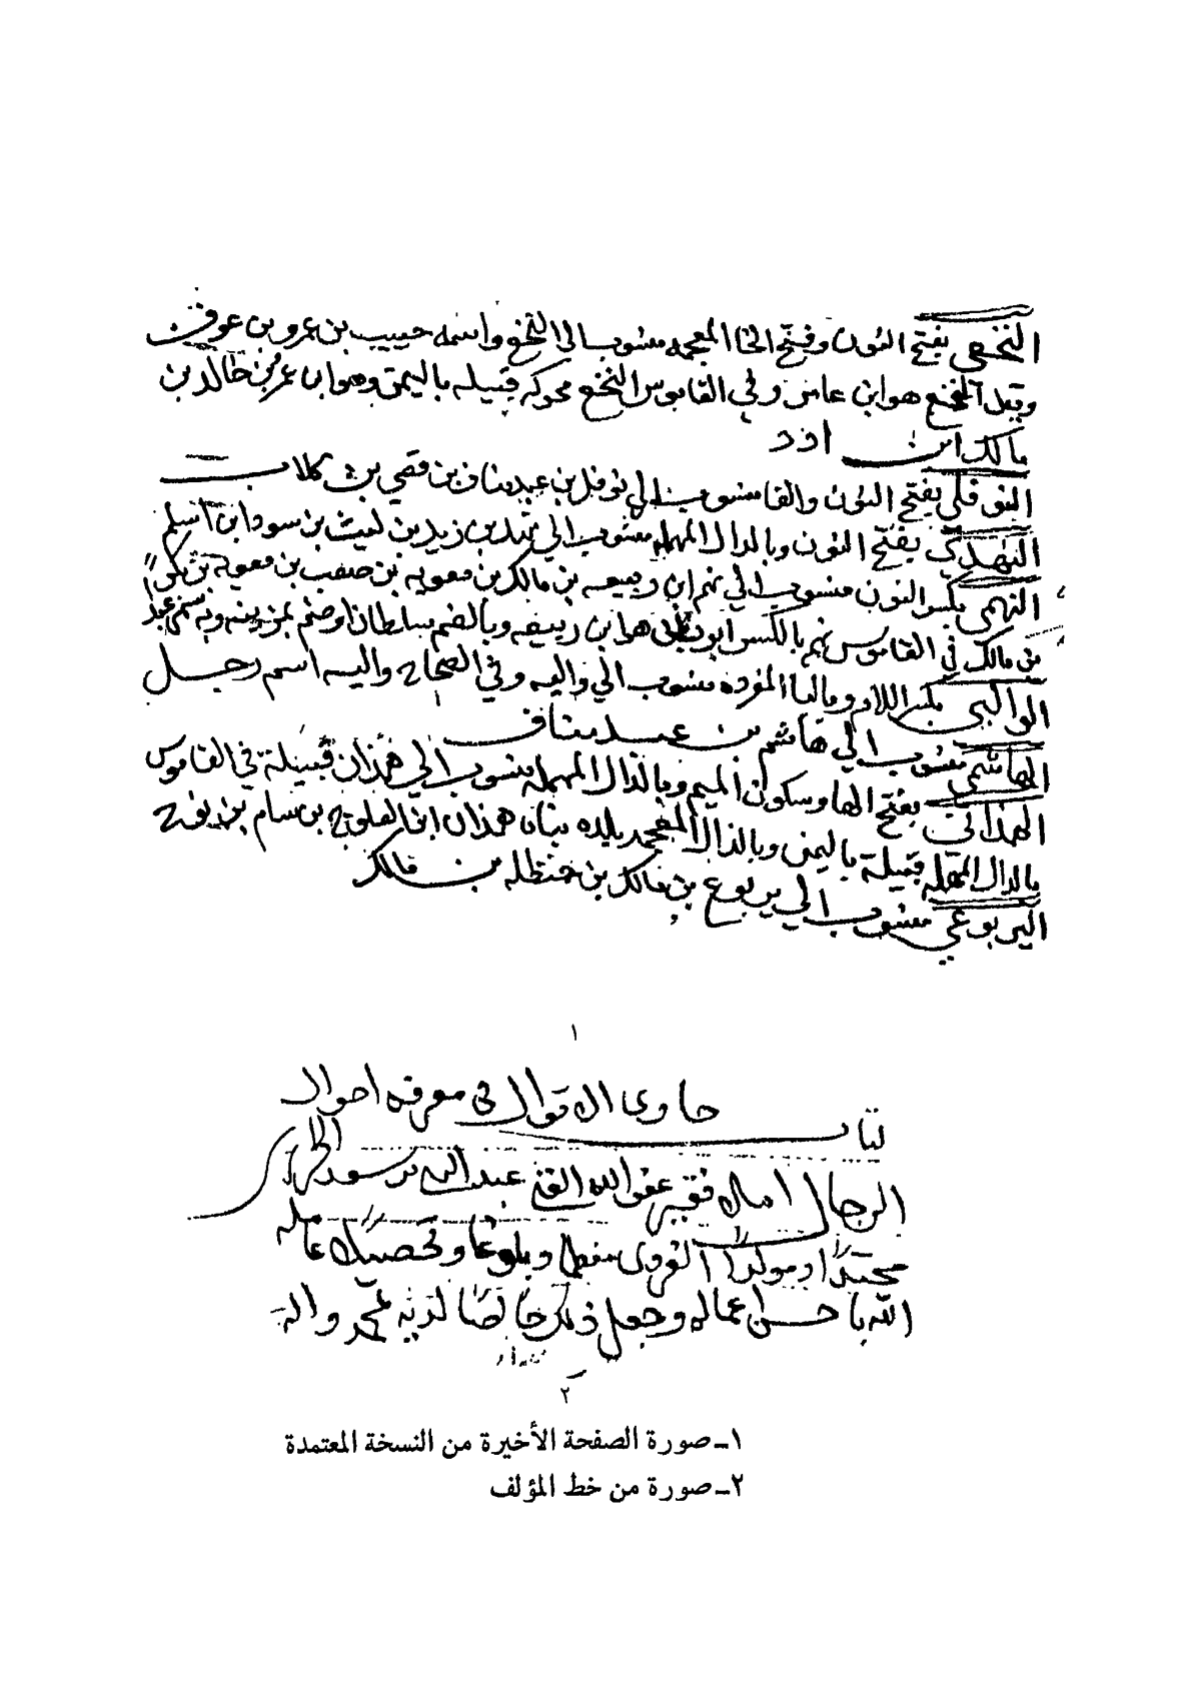 النخعي بفتح النون وفتح الخا المعجمه منسوب الى النخع واسمه حبيب بن عمرو بن عوف
وقيل النخع هو ابن عامر وفي القاموس النخع محركه قبيله باليمن وهو ابن عمرو بن خالد بن
مالك ابن ادد
النوفلي بفتح النون والفا منسوب الي نوفل بن عبد مناف بن قصي بن كلاب
النهدي بفتح النون وبالدال المهمله منسوب الي نهد بن زيد بن ليث بن سود ابن اسلم
النهمي بكسر النون منسوب الي نهم ابن ربيعه بن مالك بن معويه بن صعب بن
بن مالك في القاموس نهم بالكسر ابو بطن هو ابن ربيعه وبالضم سلطان او صنم لمزينه وبه سمى عبد
الوالبي بكسر اللام وبالبا المفرده منسوب الي والبه وفي الصحاح والبه اسم رجل
الهاشمي منسوب الي هاشم بن عبد مناف
الهمداني بفتح الها وسكون الميم وبالدال المهمله منسوب الي همدان قبيلة في القاموس
بالدال المهمله قبيلة باليمن وبالذال المعجمه بلده بناها همذان ابن الفلوج بن سام بن نوح
اليربوعي منسوب الي يربوع بن مالك بن حنظله بن مالك
١
كتاب حاوى الاقوال فى معرفه احوال
الرجال املاه فقير عفو الله الغني عبد النبي بن سعد الجزائري
محتدا ومولدا الغروى وتحصيلا عامله
الله باحسن اعماله وجعل ذلك خالصا لديه بمحمد واله
٢
١ـ صورة الصفحة الأخيرة من النسخة المعتمدة
٢ـ صورة من خط المؤلف